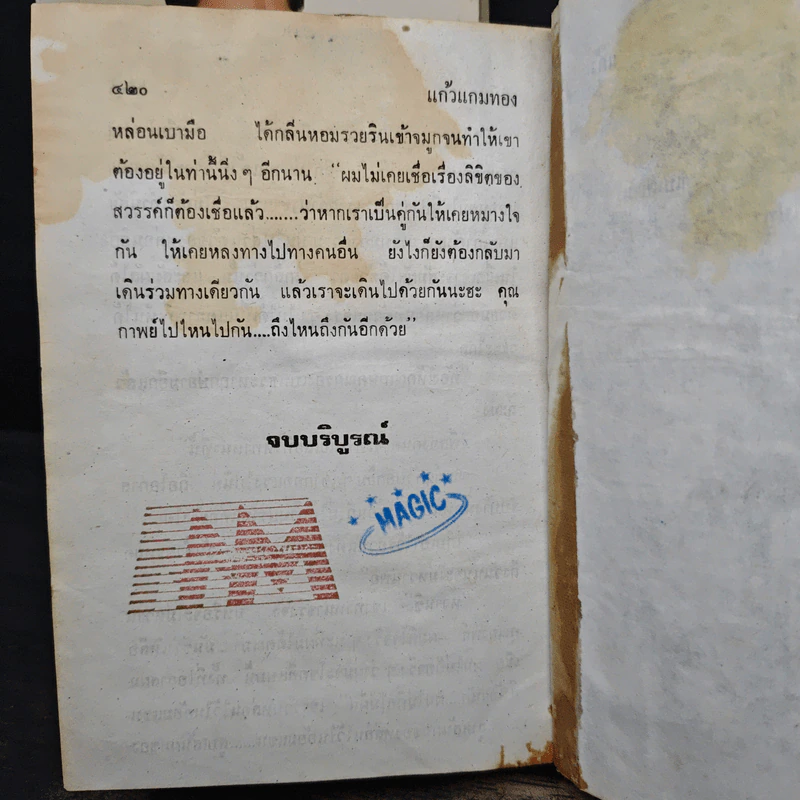 ๔๒๐
แก้วแกมทอง
หล่อนเบามือ ได้กลิ่นหอมรวยรินเข้าจมูกจนทำให้เขา
ต้องอยู่ในท่านี้นิ่ง ๆ อีกนาน “ผมไม่เคยเชื่อเรื่องลิขิตของ
สวรรค์ก็ต้องเชื่อแล้ว.......ว่าหากเราเป็นคู่กันให้เคยหมางใจ
กัน ให้เคยหลงทางไปทางคนอื่น ยังไงก็ยังต้องกลับมา
เดินร่วมทางเดียวกัน แล้วเราจะเดินไปด้วยกันนะฮะ คุณ
กาพย์ไปไหนไปกัน....ถึงไหนถึงกันอีกด้วย”
จบบริบูรณ์
MAGIC